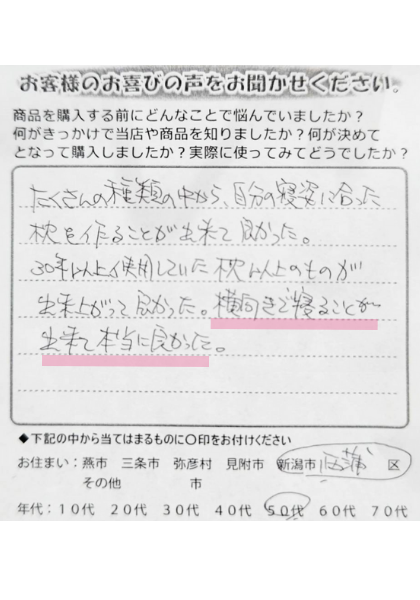 お客様のお喜びの声をお聞かせください。
商品を購入する前にどんなことで悩んでいましたか?
何がきっかけで当店や商品を知りましたか?何が決めて
となって購入しましたか?実際に使ってみてどうでしたか?
たくさんの種類の中から、自分の寝姿に合った
枕を作ることが出来て良かった。
30年以上使用していた枕以上のものが
出来上がって良かった。横向きで寝ることが
出来て本当に良かった。
◆下記の中から当てはまるものに〇印をお付けください
お住まい:燕市 三条市 弥彦村 見附市 新潟市 西蒲 区
その他 市
年代:10代 20代 30代 40代 50代 60代 70代